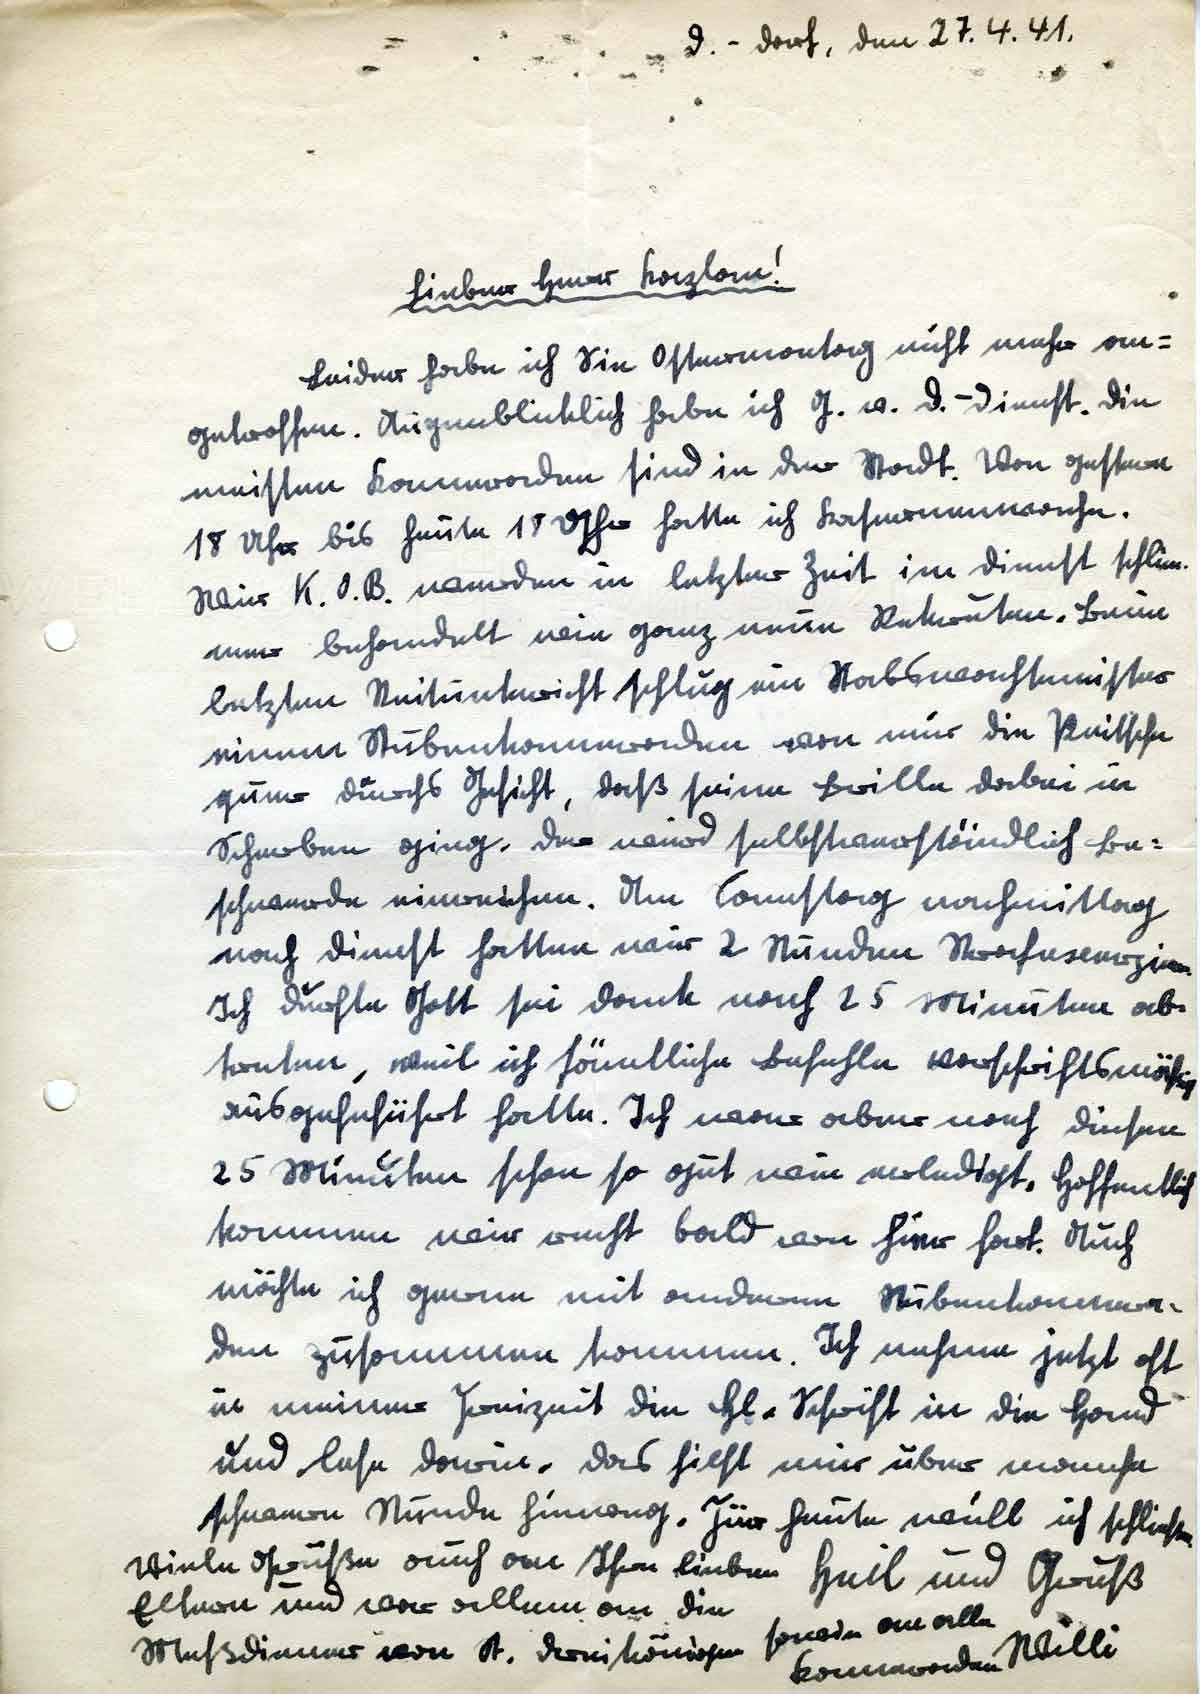 D.-dorf, den 27.4.41.
Lieber Herr Kaplan!
Leider habe ich Sie Ostermontag nicht mehr an=
getroffen. Augenblicklich habe ich G. v. D.-Dienst. Die
meisten Kameraden sind in der Stadt. Von gestern
18 Uhr bis heute 18 Uhr hatte ich Kasernenwache.
Wir K.O.B. werden in letzter Zeit im Dienst schlim-
mer behandelt wie ganz neue Rekruten. Beim
letzten Reitunterricht schlug ein Stabswachtmeister
einem Stubenkameraden von mir die Peitsche
quer durchs Gesicht, daß seine Brille dabei in
Scherben ging. Der wird selbstverständlich Be=
schwerde einreichen. Am Samstag nachmittag
nach Dienst hatten wir 2 Stunden Strafexerzieren.
Ich durfte Gott sei dank nach 25 Minuten ab-
treten, weil ich sämtliche Befehle vorschriftsmäßig
ausgeführt hatte. Ich war aber nach diesen
25 Minuten schon so gut wie erledigt. Hoffentlich
kommen wir recht bald von hier fort. Auch
möchte ich gerne mit anderen Stubenkamera-
den zusammen kommen. Ich nehme jetzt oft
in meiner Freizeit die Hl. Schrift in die Hand
und lese darin. Das hilft mir über manche
schwere Stunde hinweg. Für heute will ich schließen.
Heil und Gruß
Willi
Viele Grüße auch an Ihre lieben
Eltern und vor allem an die
Meßdiener von St. Dreikönigen sowie an alle
Kameraden